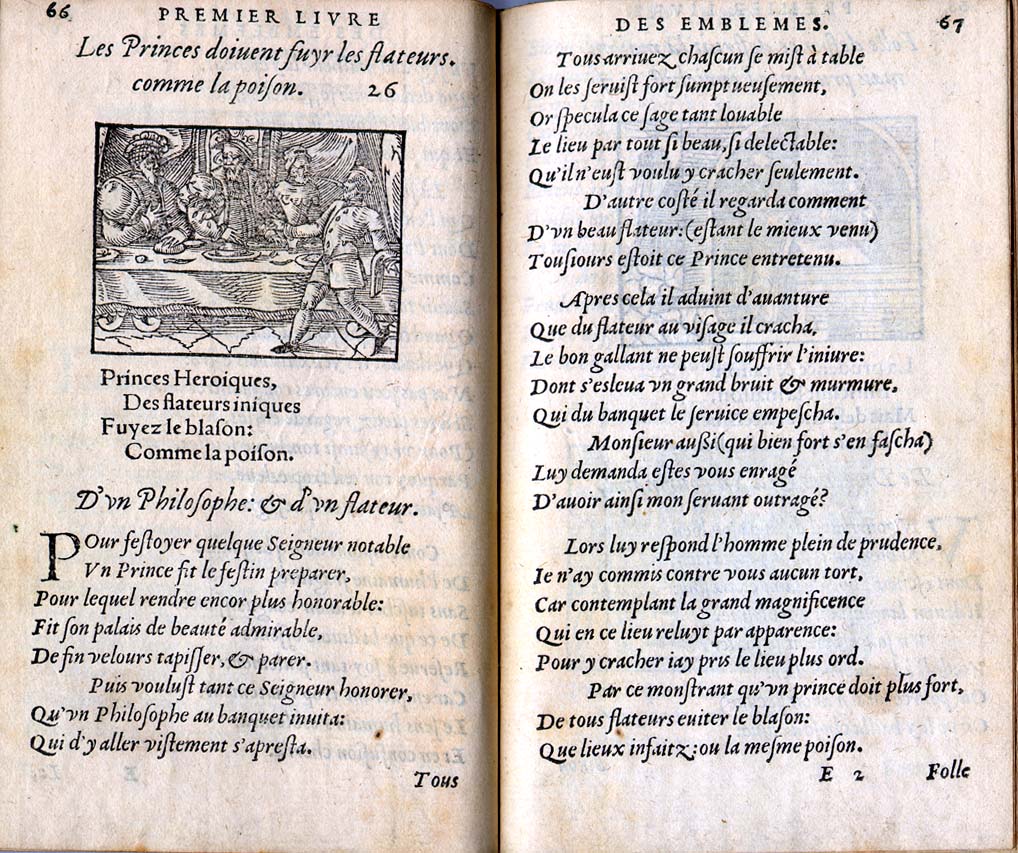 66
PREMIER LIVRE
Les Princes doiuent fuyr les flateurs.
comme la poison. 26
Princes Heroiques,
Des flateurs iniques
Fuyez le blason:
Comme la poison.
D'vn Philosophe: & d'vn flateur.
POur festoyer quelque Seigneur notable
Vn Prince fit le festin preparer,
Pour lequel rendre encor plus honorable:
Fit son palais de beauté admirable,
De fin velours tapisser, & parer.
Puis voulust tant ce Seigneur honorer,
Qu'vn Philosophe au banquet inuita:
Qui d'y aller vistement s'apresta.
Tous
DES EMBLEMES. 67
Tous arriuez, chascun se mist à table
On les seruist fort sumptueusement,
Or specula ce sage tant louable
Le lieu par tout si beau, si delectable:
Qu'il n'eust voulu y cracher seulement.
D'autre costé il regarda comment
D'vn beau flateur: (estant le mieux venu)
Tousiours estoit ce Prince entretenu.
Apres cela il aduint d'auanture
Que du flateur au visage il cracha,
Le bon gallant ne peust souffrir l'iniure:
Dont s'esleua vn grand bruit & murmure,
Qui du banquet le seruice empescha.
Monsieur aussi (qui bien fort s'en fascha)
Luy demanda estes vous enragé
D'auoir ainsi mon seruant outragé?
Lors luy respond l'homme plein de prudence,
Ie n'ay commis contre vous aucun tort,
Car contemplant la grand magnificence
Qui en ce lieu reluyt par apparence:
Pour y cracher iay pris le lieu plus ord.
Par ce monstrant qu'vn prince doit plus fort,
De tous flateurs euiter le blason:
Que lieux infaitz: ou la mesme poison.
E 2 Folle